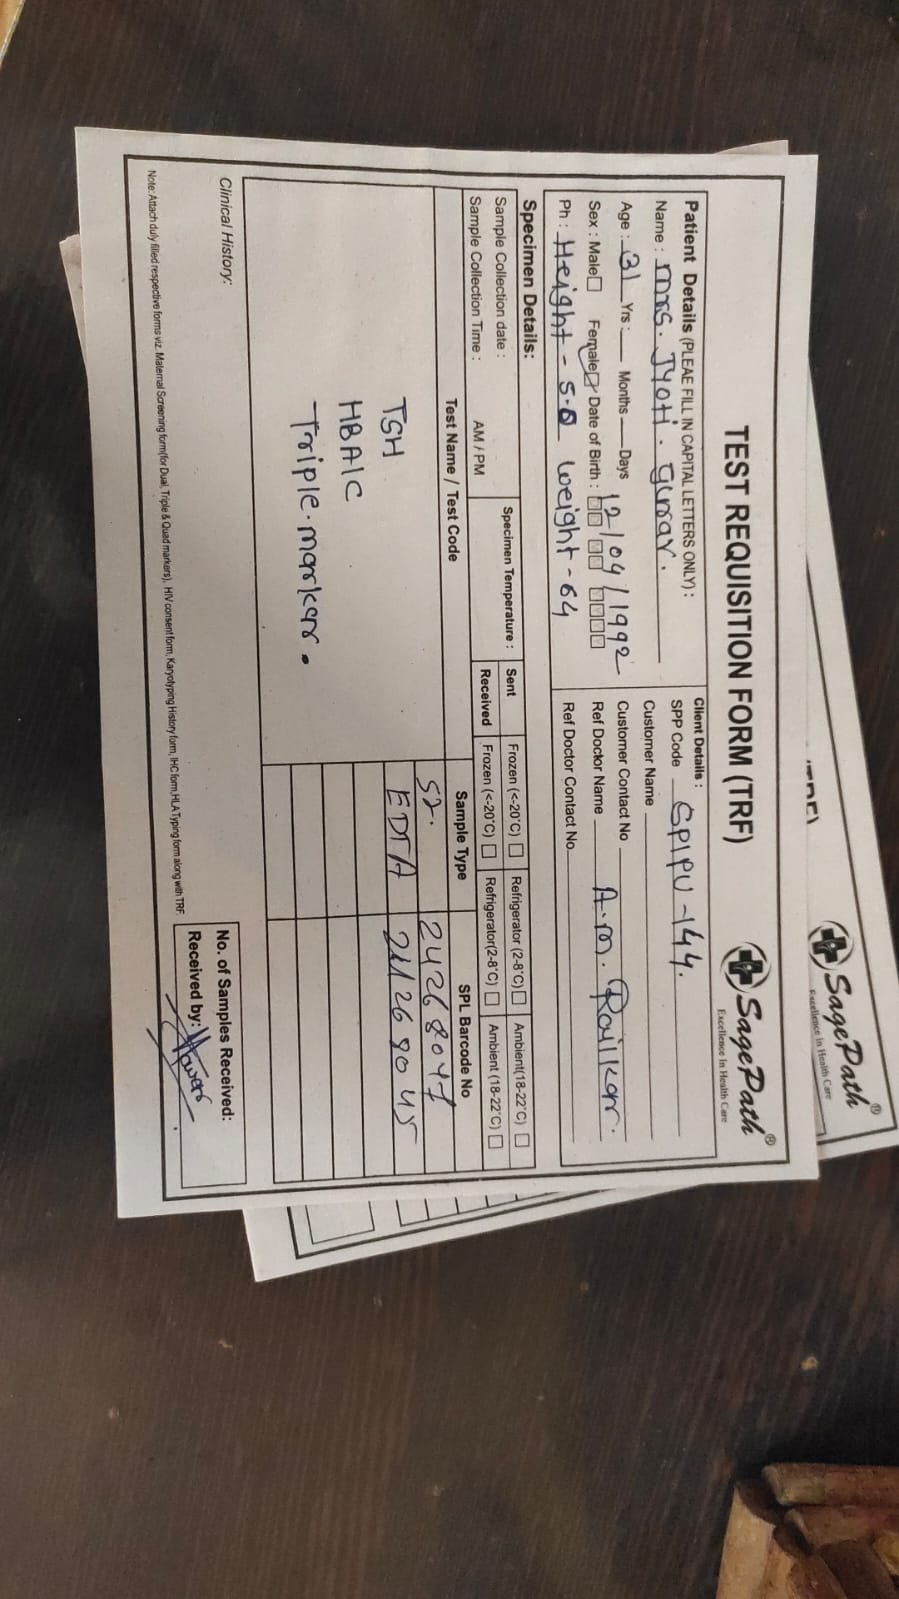 TEST REQUISITION FORM (TRF)
SagePath®
Excellence In Health Care
Patient Details (PLEAE FILL IN CAPITAL LETTERS ONLY) :
Name : mrs. Jyoti.
Age : 31 Yrs : Months Days 12/04/1992
Sex : Male Female Date of Birth :
Ph : Height - 5.0 weight - 64
Client Details :
SPP Code SPIPU-144.
Customer Name
Customer Contact No
Ref Doctor Name A.m. Railkar.
Ref Doctor Contact No.
Specimen Details:
Sample Collection date :
Sample Collection Time : AM / PM
Specimen Temperature : Sent Frozen (<-20°C) Refrigerator (2-8°C) Ambient(18-22°C)
Received Frozen (<-20°C) Refrigerator(2-8°C) Ambient (18-22°C)
Test Name / Test Code Sample Type SPL Barcode No
TSH
HBA1C
Triple.marker.
24268047
EDTA
Clinical History:
No. of Samples Received:
Received by:
Note: Attach duly filled respective forms viz. Maternal Screening form(for Dual, Triple & Quad markers), HIV consent form, Karyotyping History form, IHC form, HLA Typing form along with TRF.
SagePath®
Excellence In Health Care